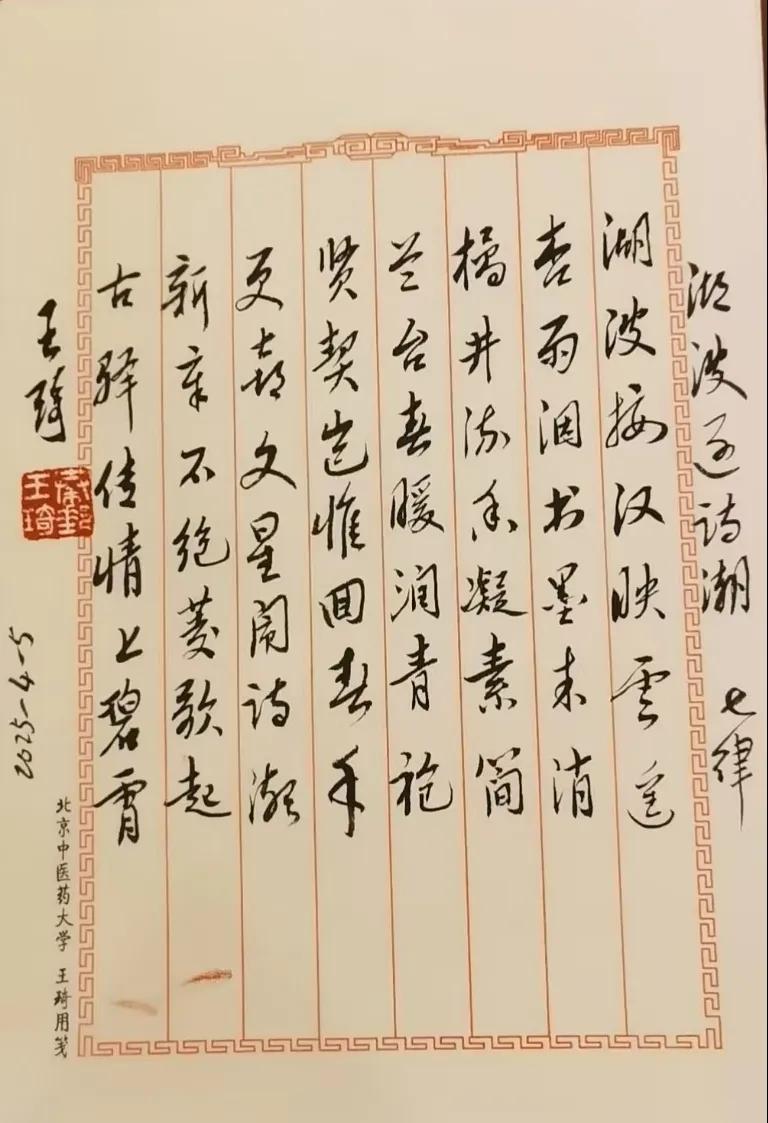 湖波逐诗潮 七律
湖波接汉映云遥
杏雨洇书墨未消
橘井流香凝素简
兰台春暖润青袍
贤契岂惟回春手
更喜文星闹诗潮
新章不绝菱歌起
古驿传情上碧霄
王琦
秦邮王琦
2025-4-5
北京中医药大学 王琦用笺